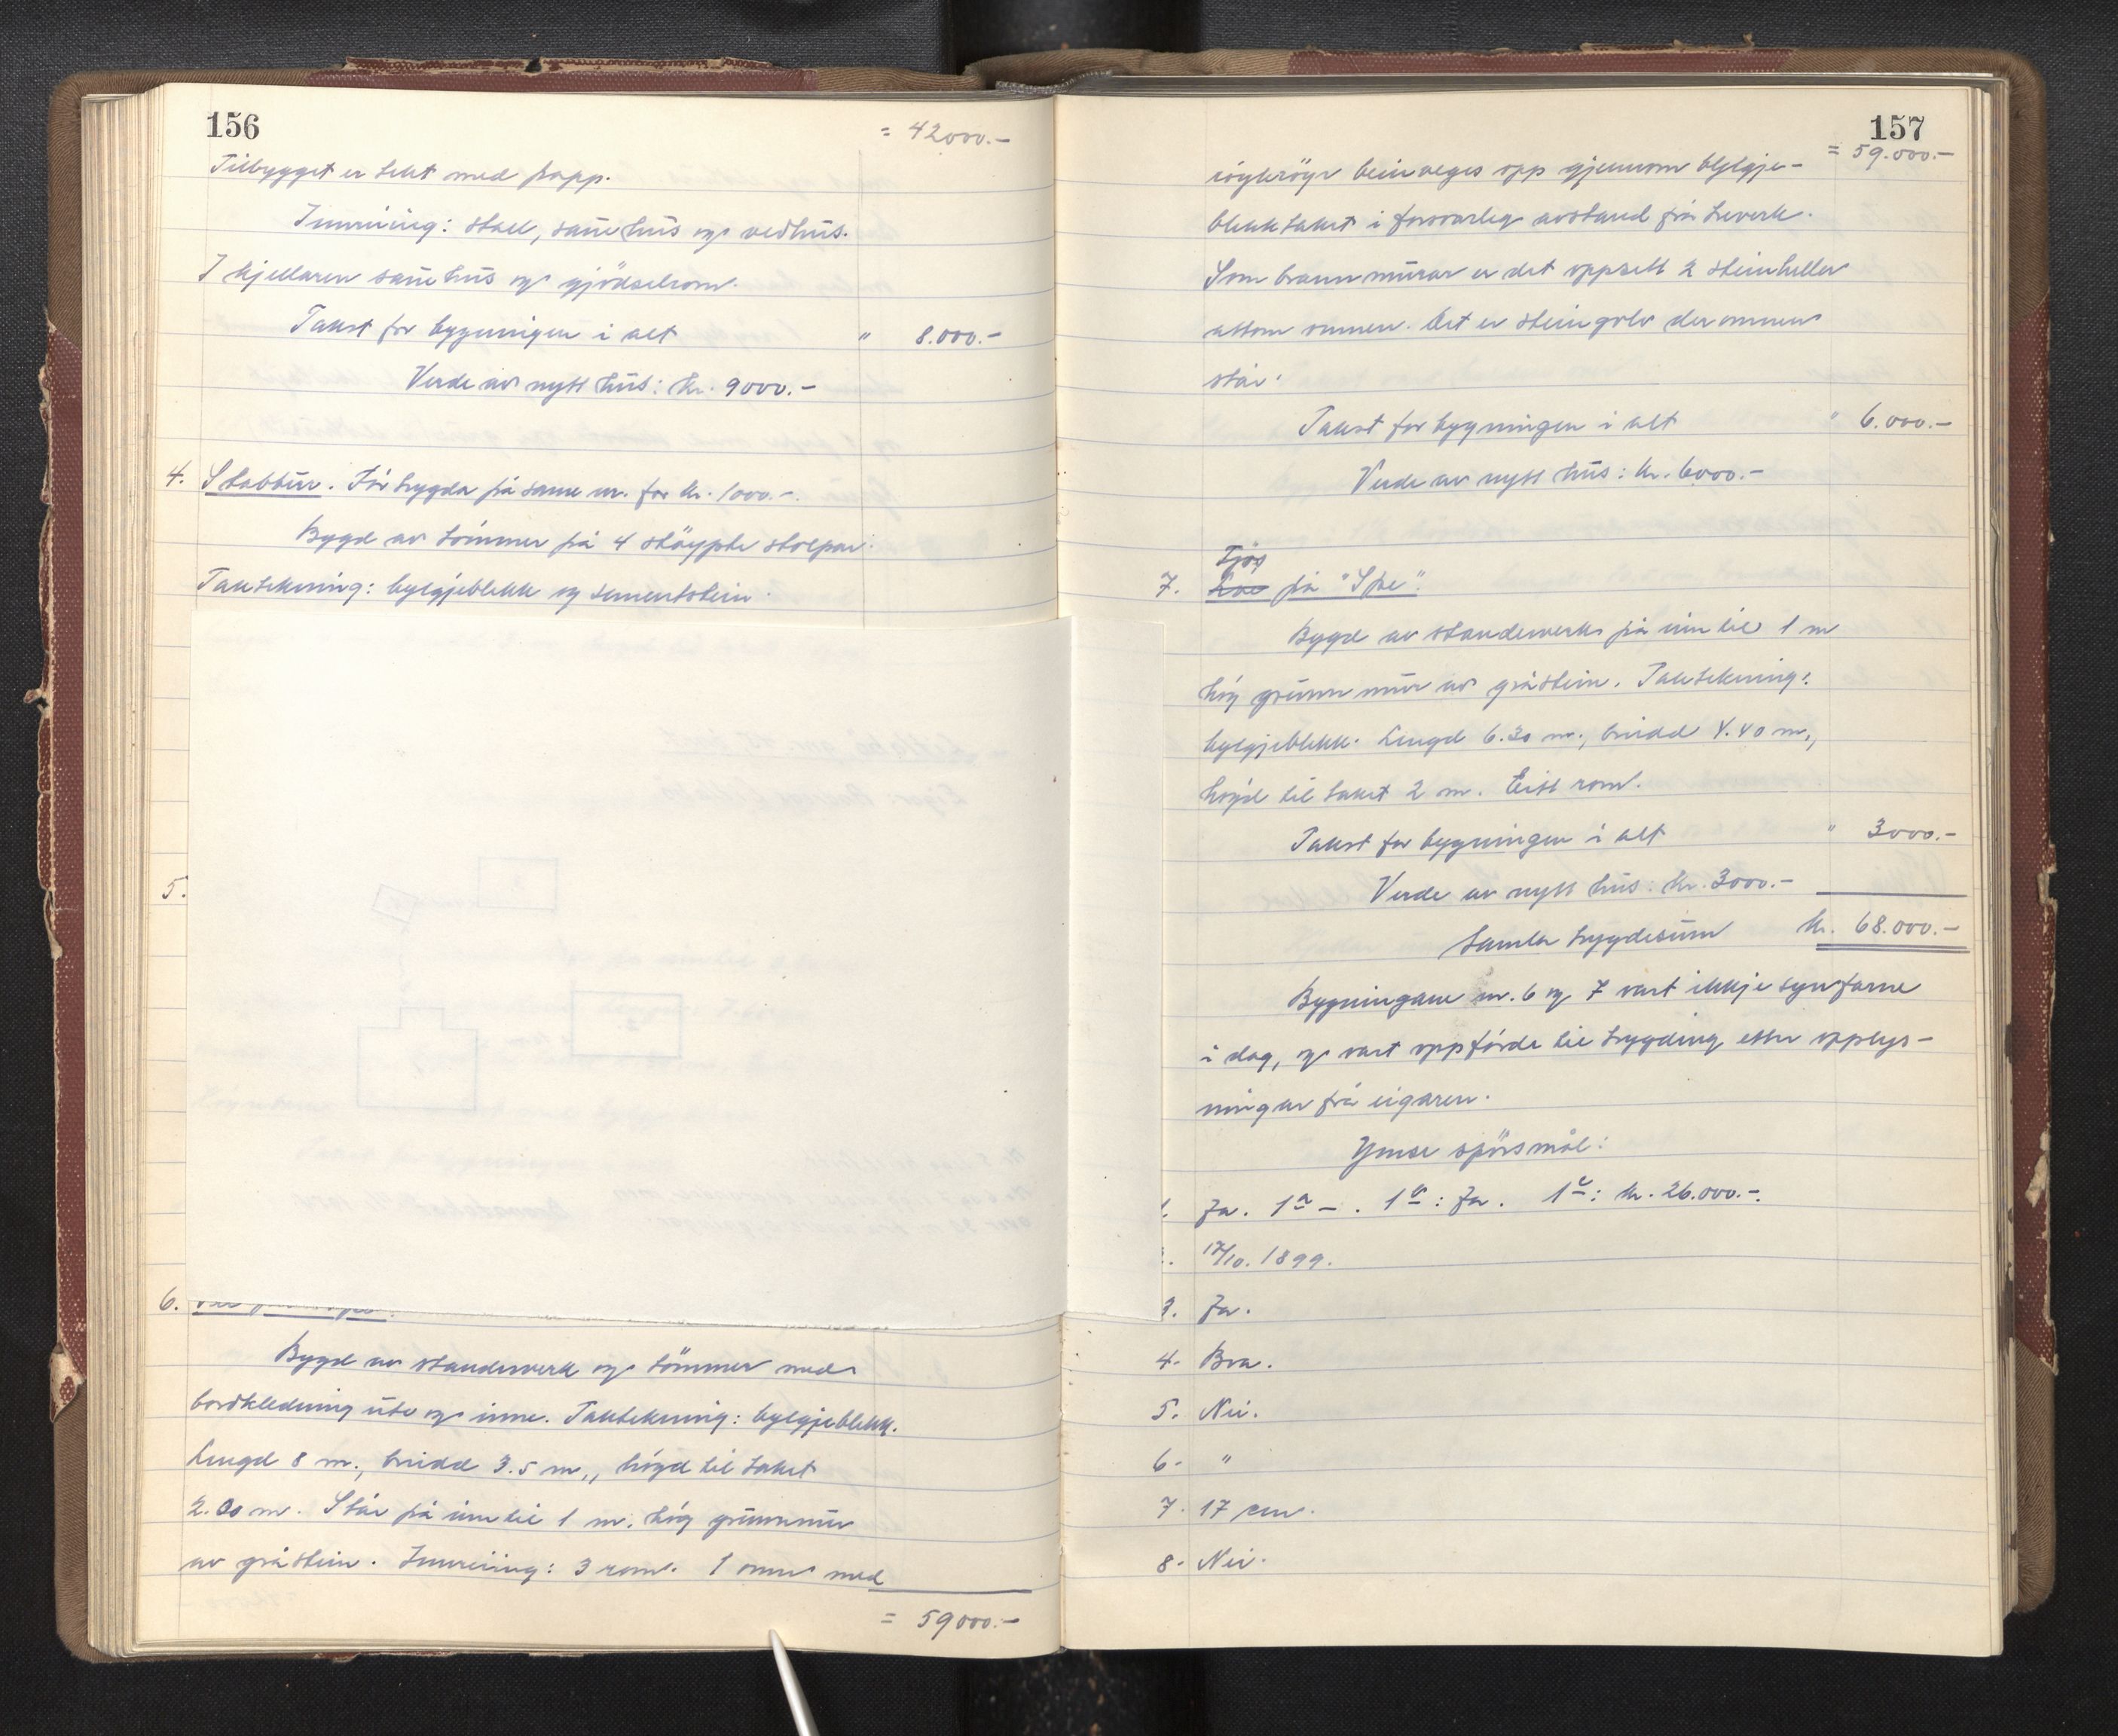 156
= 42000.-
Tilbygget er tekt med papp.
Innreiing: stall, sauehus og vedhus.
I kjellaren sauehus og gjödselrom.
Takst for bygningen i alt " 8.000.-
Verde av nytt hus: kr. 9000.-
4. Stabbur. Før trygda på same nr. for kr. 1000.-.
Bygd av tömmer på 4 støypte stolpar.
Taktekning: bylgjeblekk og sementstein.
5.
6.
Bygd av standerverk og tömmer med
bordkledning ute og inne. Taktekning: bylgjeblekk.
Lengd 8 m., breidd 3.5 m., høgd til taket
2.00 m. Står på inntil 1 m. høg grunnmur
av gråstein. Innreiing: 3 rom. 1 omn med
= 59000.-
157
= 59.000.-
röykröyr beinveges opp gjennom bylgje-
blekktaket i forsvarleg avstand frå treverk.
Som brannmurar er det oppsett 2 steinheller
attom omnen. Det er steingolv der omnen
står.
Takst for bygningen i alt " 6.000.-
Verde av nytt hus: kr. 6000.-
Fjös
7. på "Spe".
Bygd av standerverk på inntil 1 m
høg grunnmur av gråstein. Taktekning:
bylgjeblekk. Lengd 6.30 m., breidd 4.40 m.,
høgd til taket 2 m. Eitt rom.
Takst for bygningen i alt " 3000.-
Verde av nytt hus: kr. 3000.-
Samla trygdesum kr. 68.000.-
Bygningane nr. 6 og 7 vart ikkje synfarne
i dag, og vart oppførde til trygding etter opplys-
ningar frå eigaren.
Ymse spörsmål:
1. Ja. 1a - . 1b: Ja. 1c: kr. 26.000.-.
17/10. 1899.
3. Ja.
4. Bra.
5. Nei.
6. "
7. 17 cm.
8. Nei.